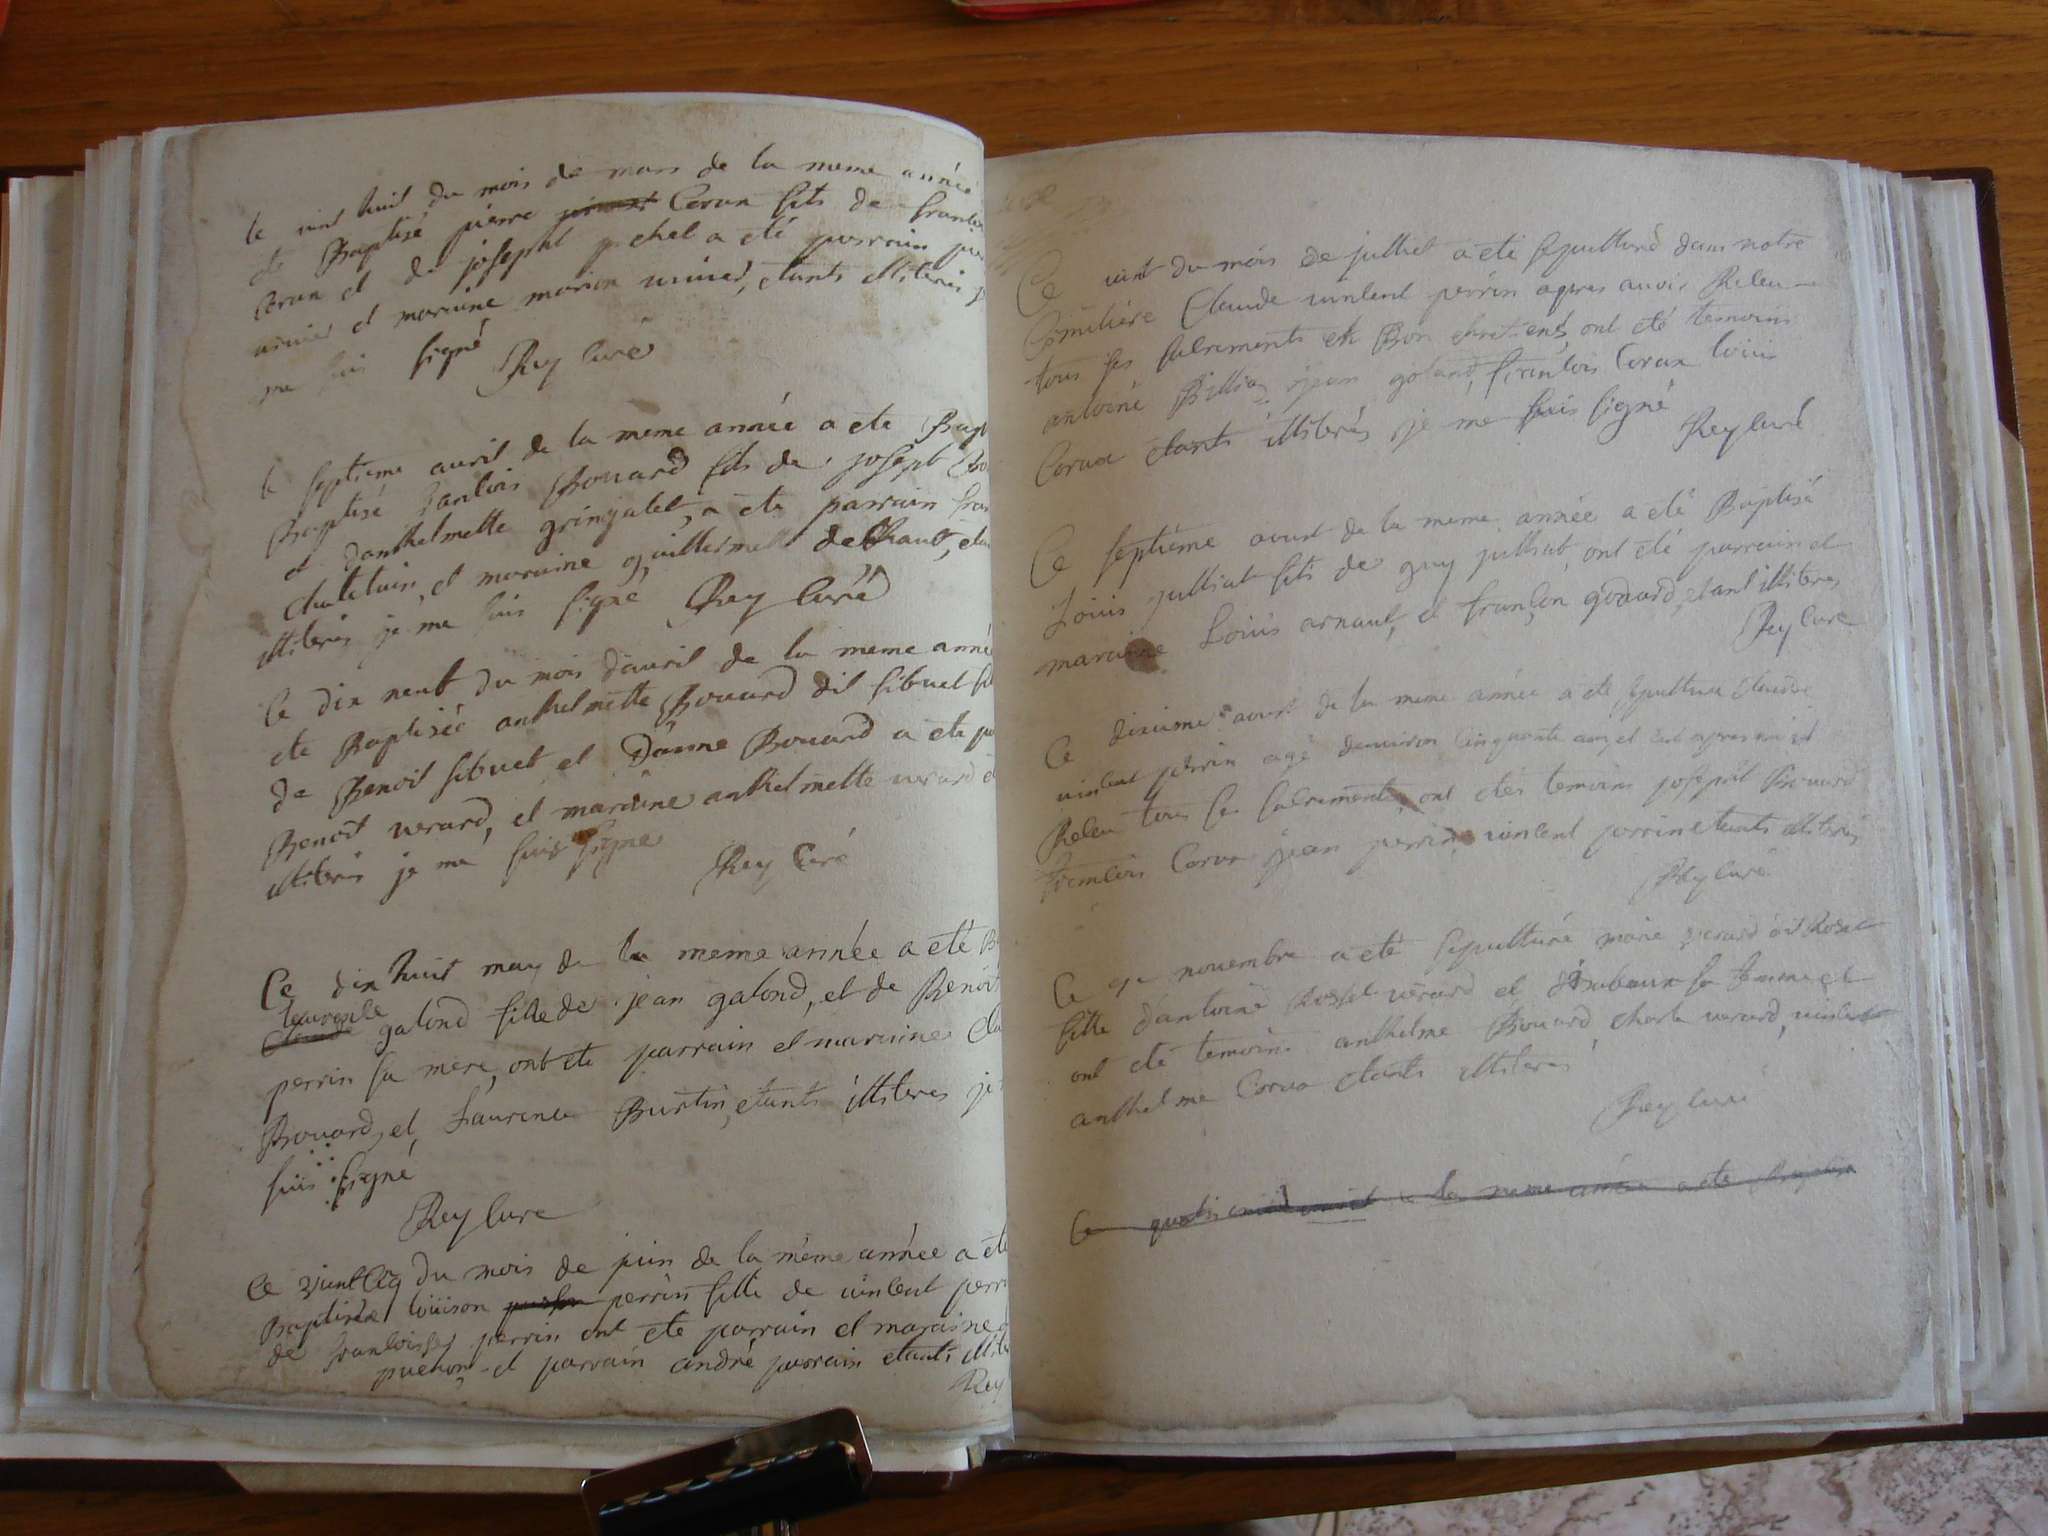 le vint huit du mois de mars de la meme année
ete Baptisé pierre Corva fits de
Corva et de joseph a été parrain
et maraine marion etants illiteres
me suis signé
Rey Curé
le septieme avril de la meme année a ete Bapt
Baptisé Bovard fils de joseph Bo
et danthelmette gringalet, a ete parrain fran
chatelain, et maraine guillermette debhaut, etan
illiteres je me suis signé Rey Curé
le dix neuf du mois d'avril de la meme anné
ete Baptiséé anthelmette Bovard dit sibuet
de Benoit sibuet et D'anne Bovard a ete
Benoit verard, et maraine anthelmette verard
illiteres je me suis signe
Rey Curé
Ce dix huit may de la meme année a eté B
galond fille de jean galond, et de Benoit
perrin sa mere, ont ete parrain et maraine Cla
Bovard, et Laurence Burtin, etants illiteres je
suis signé
Rey Cure
Ce vint du mois de juin de la méme année a eté
Baptisée loüison perrin fille de vincent perri
de francoise perrin ont ete parrain et maraine
et parrain andré perrain etants illite
Rey
Ce vint du mois de julliet a eté sepulturé dans notre
Cimitiére Claude vincent perrin apres avoir Releu
tous ses sacrements en Bon chretiens, ont eté temoins
antoine Billiaz jean goland, francois Corva loüis
Corva etants illiterés je me suis signé
Rey Curé
Ce septiéme aoust de la meme année a eté Baptisé
Loüis julliat fils de guy julliat, ont eté parrain et
maraine Loüis arnaut, et françon govard, etant illiteres
Rey Cure
Ce dixieme aoust de la meme année a eté sepulturé Claude
vincent perrin agé denviron Cinquante ans, et cest apres avoir
Releu tous ses sacrements, ont etés temoins joseph Bovard
francois Corva jean perrin vincent perrin etants illiteres
Rey Curé
Ce novembre a eté sepulturé marie verard dit Rosset
fille d'antoine Rosset verard et sa femme et
ont eté temoins anthelme Bovard, charle verard, vincent
anthelme Corva etants illiteres
Rey Curé
Ce la meme année a ete Baptisé